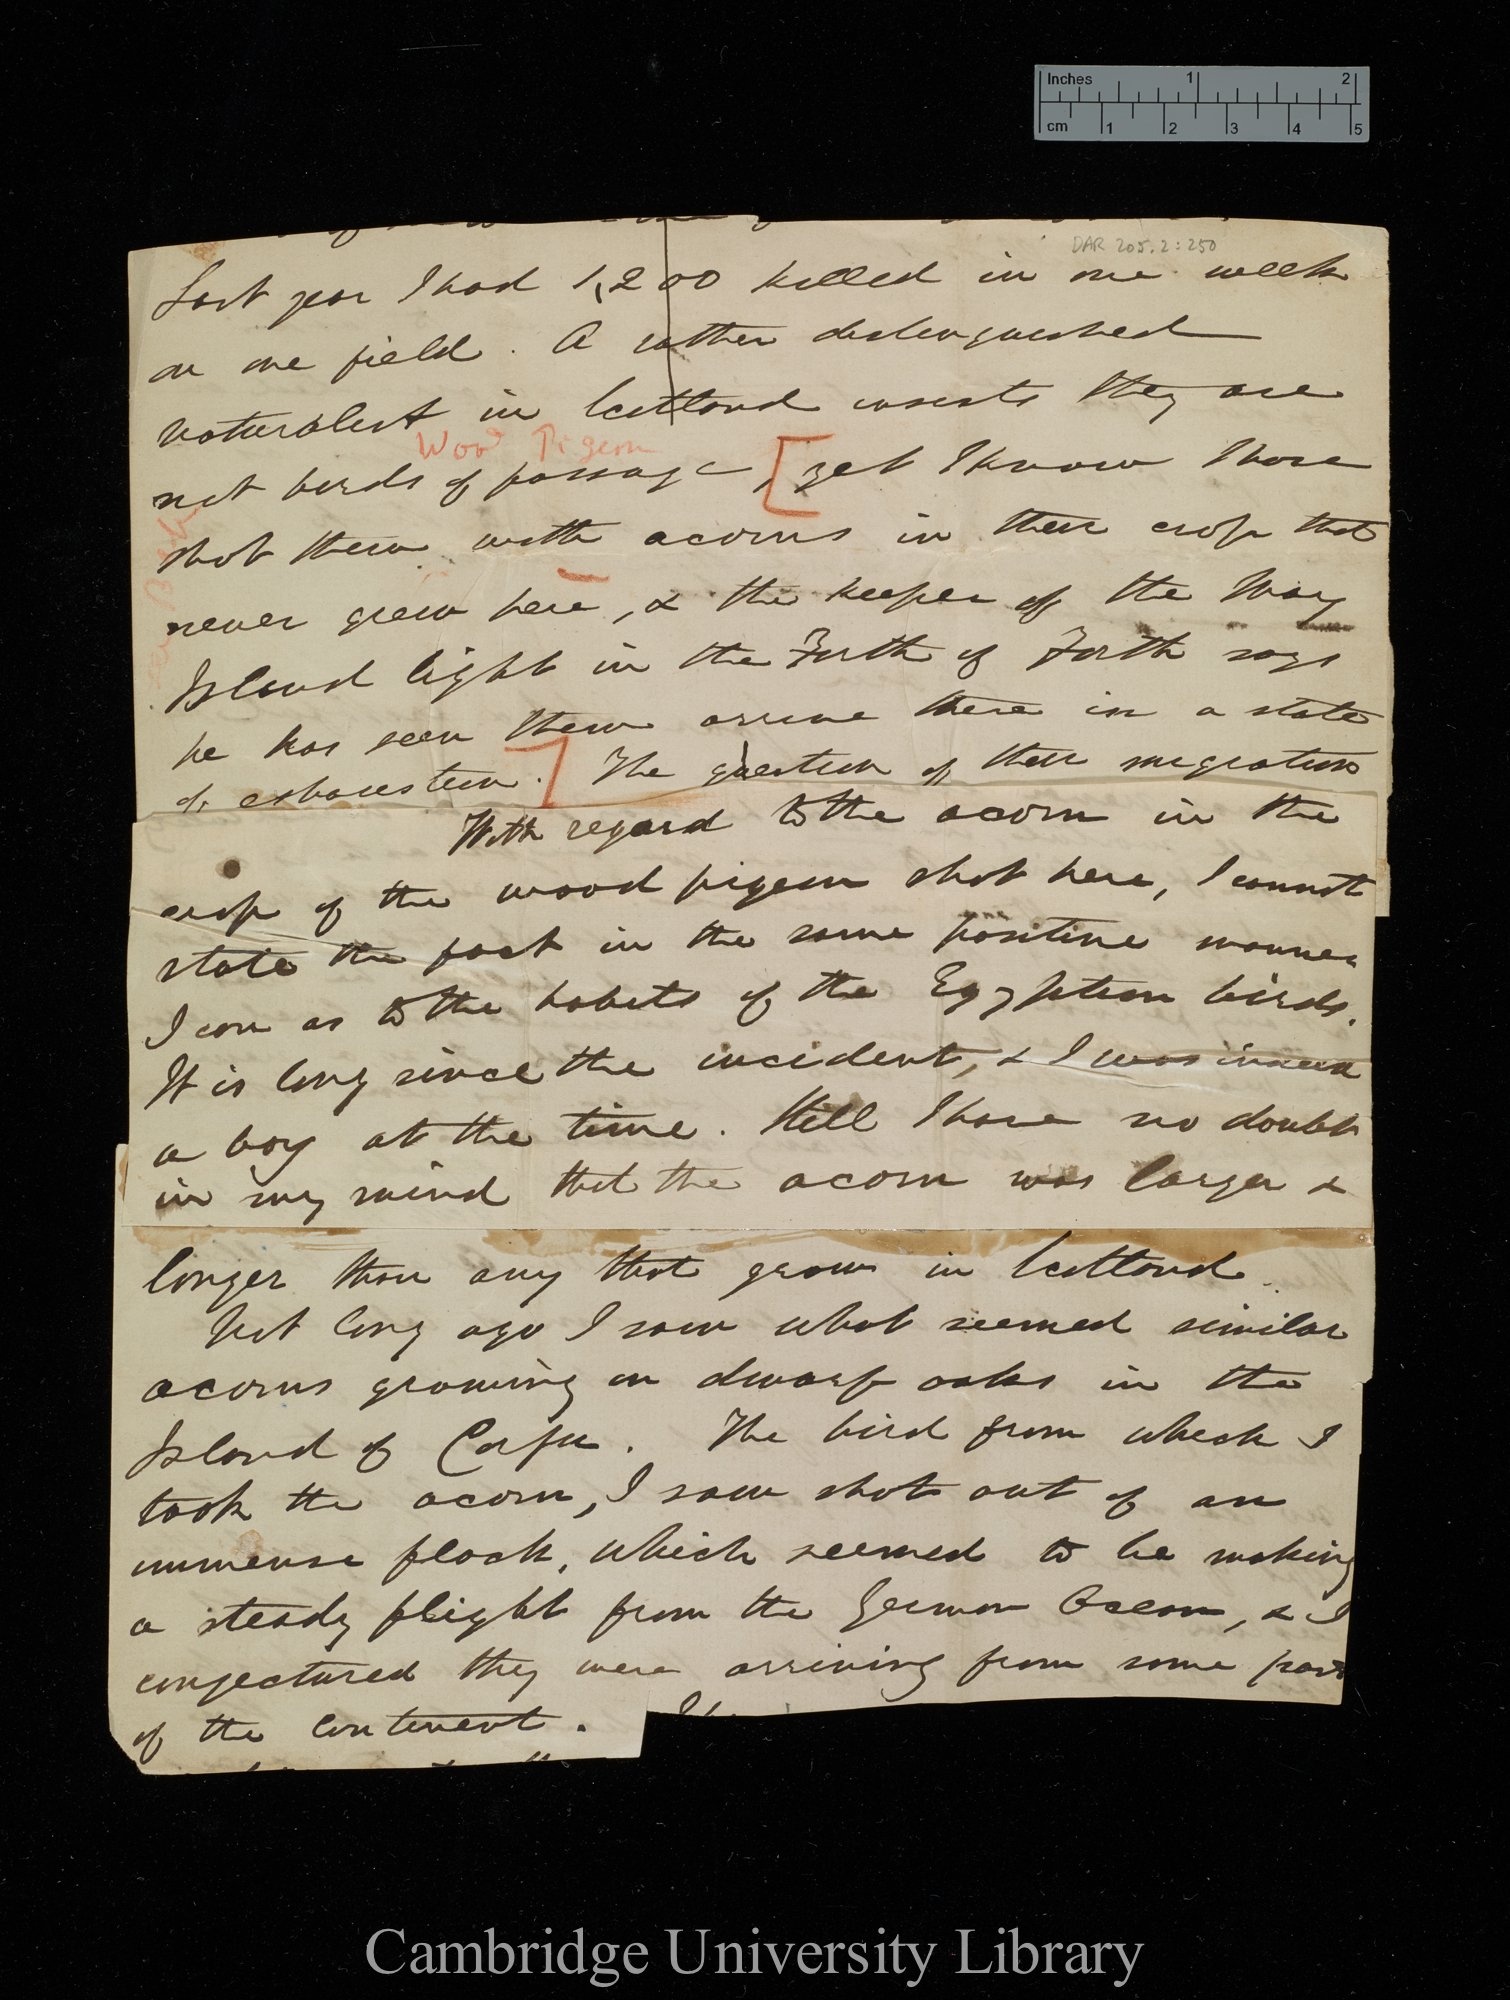 Inches 1 2
cm 1 2 3 4 5
DAR 205.2:250
Last year I had 1,200 killed in one week
on one field. A rather distinguished
naturalist in Scotland insists they are
Wood Pigeon
not birds of passage, [yet I know I have
shot them with acorns in their crop that
never grew here, & the keeper of the May
Island light in the Firth of Forth says
he has seen them arrive there in a state
of exhaustion.] The question of their migration
With regard to the acorn in the
crop of the wood pigeon shot here, I cannot
state the fact in the same positive manner
I can as to the habits of the Egyptian birds.
It is long since the incident, & I was
a boy at the time. Still I have no doubt
in my mind that the acorn was larger &
longer than any that grow in Scotland.
Not long ago I saw what seemed similar
acorns growing on dwarf oaks in the
Island of Corfu. The bird from which I
took the acorn, I saw shot out of an
immense flock, which seemed to be making
a steady flight from the German Ocean, & I
conjectured they were arriving from some part
of the Continent.
Cambridge University Library